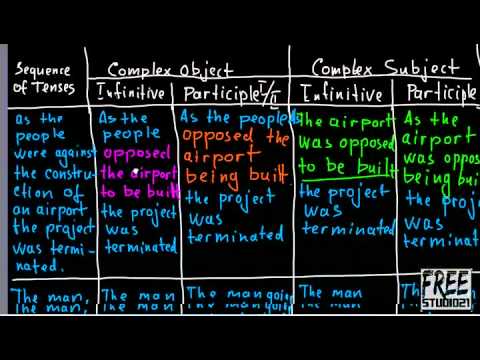 Sequence
of Tenses
Complex Object
Complex Subject
Infinitive
Participle I/II
Infinitive
Participle
As the
people
were against
the constru-
ction of
an airport
the project
was termi-
nated.
As the
people
opposed
the airport
to be built
the project
was
terminated
As the people
opposed the
airport
being built
the project
was
terminated
The airport
was opposed
to be built
the project
was
terminated
As the
airport
was oppos
being buil
the proje
was
terminat
The man,
The man
The man going
The man
The man
FREE
STUDIO21